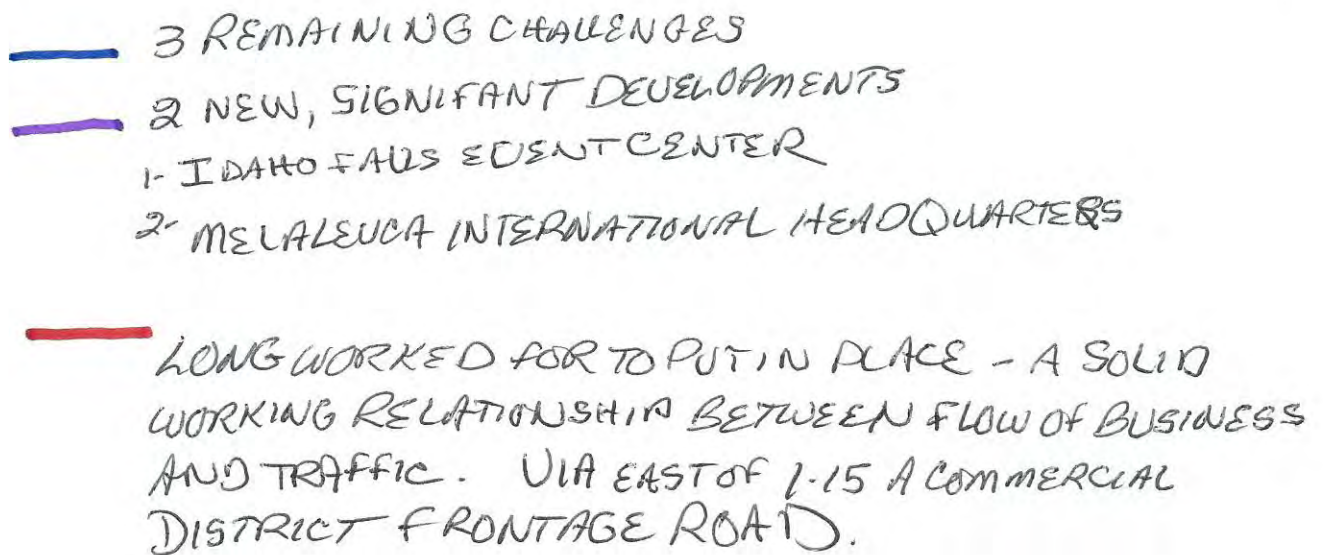 3 REMAINING CHALLENGES
2 NEW, SIGNIFANT DEVELOPMENTS
1- IDAHO FALLS EVENT CENTER
2- MELALEUCA INTERNATIONAL HEADQUARTERS
LONG WORKED FOR TO PUT IN PLACE - A SOLID
WORKING RELATIONSHIP BETWEEN FLOW OF BUSINESS
AND TRAFFIC. VIA EAST OF I-15 A COMMERCIAL
DISTRICT FRONTAGE ROAD.